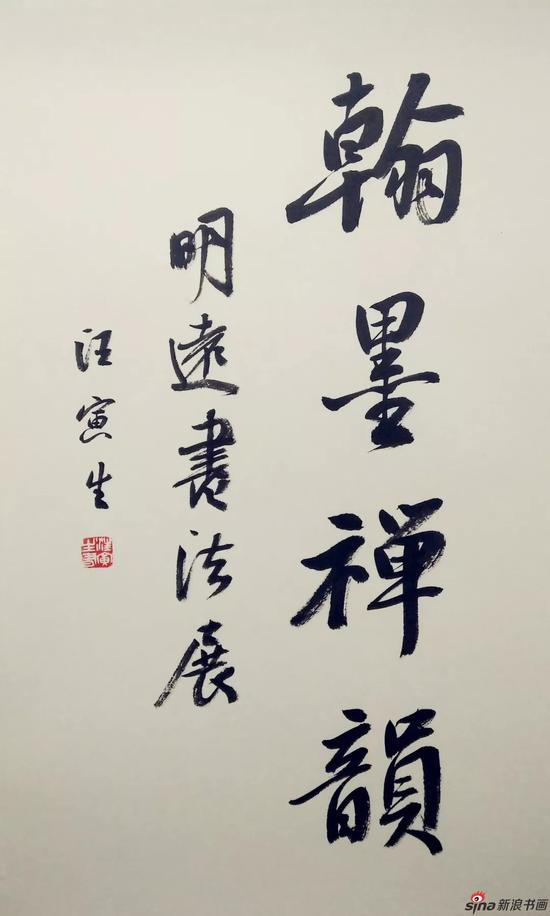 翰墨禅韻
明遠書法展
汪寅生
sina新浪书画